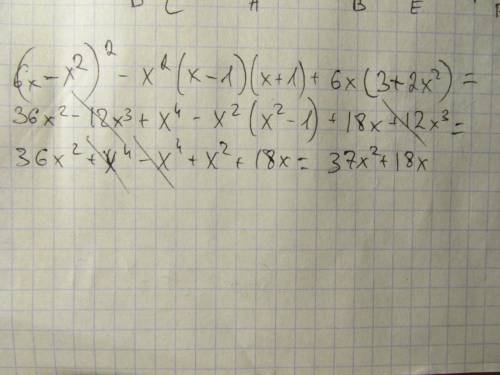 D C A B E
(6x - x²)² - x²(x-1)(x+1) + 6x(3+2x²) =
36x² - 12x³ + x⁴ - x²(x²-1) + 18x + 12x³ =
36x² + x⁴ - x⁴ + x² + 18x = 37x² + 18x